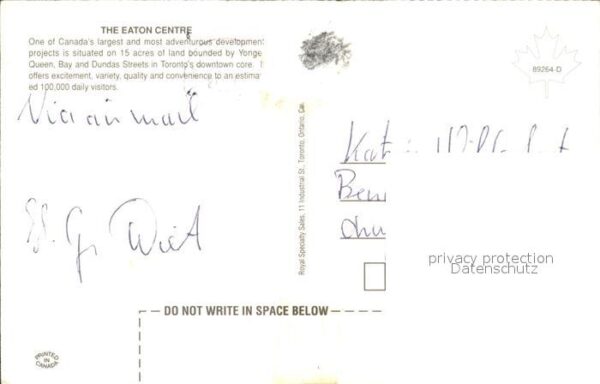 THE EATON CENTRE
One of Canada's largest and most adventurous development
projects is situated on 15 acres of land bounded by Yonge
Queen, Bay and Dundas Streets in Toronto's downtown core. I
offers excitement, variety, quality and convenience to an estima
ed 100,000 daily visitors.
89264-D
Via air mail
Kat
Ben
Royal Specialty Sales, 11 Industrial St., Toronto, Ontario, Ca
privacy protection
Datenschutz
DO NOT WRITE IN SPACE BELOW
PRINTED
IN
CANADA